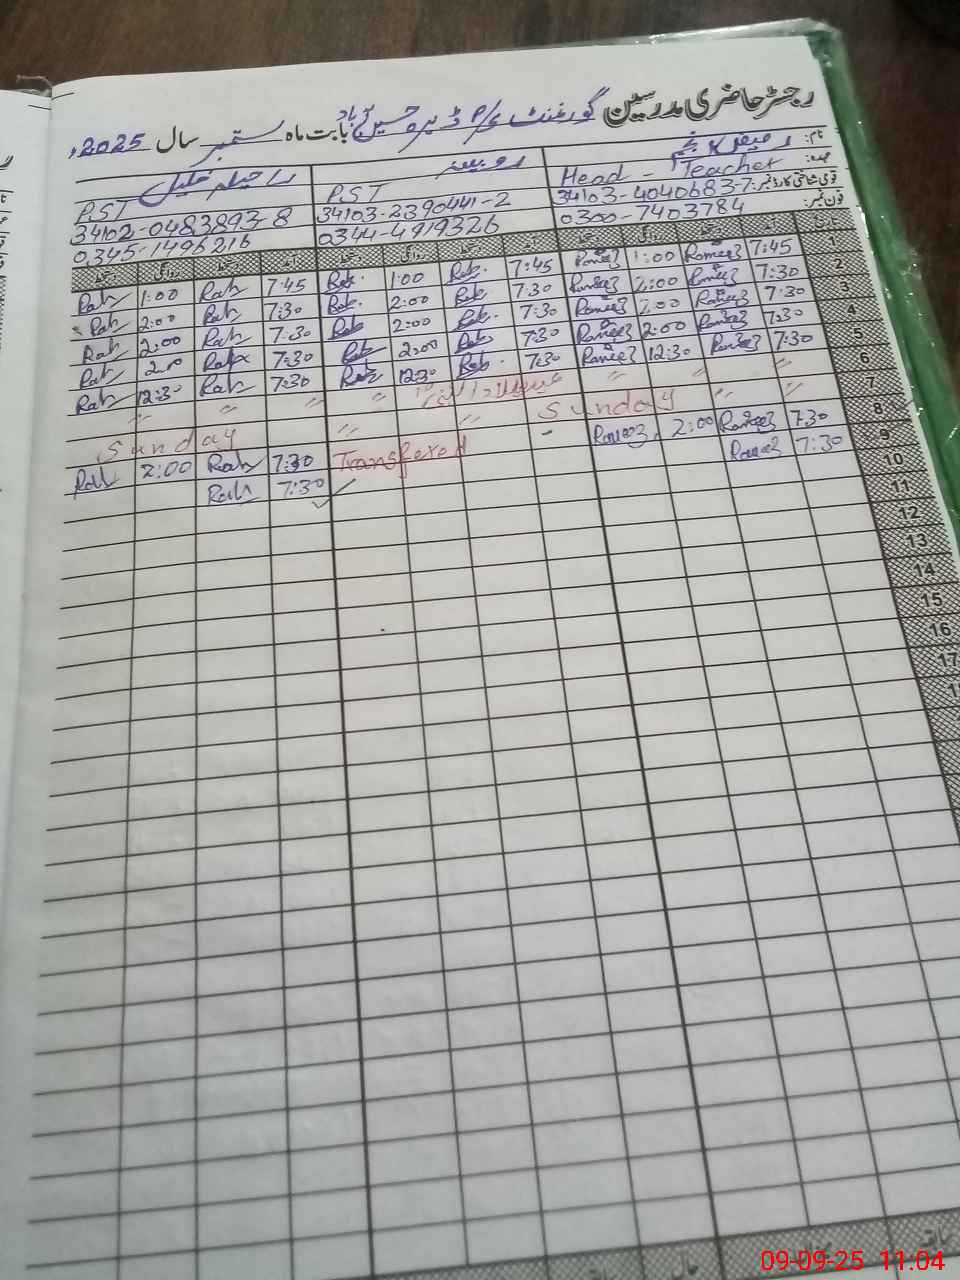 رجسٹر حاضری مدرسین گورنمنٹ P/S ڈیرہ حسین آباد بابت ماہ ستمبر سال 2025ء
نام: رمیضہ انجم روبینہ راحیلہ خلیل
عہدہ: Head - Teacher PST PST
قومی شناختی کارڈ نمبر: 34103-4040683-7 34103-2390441-2 34102-0483893-8
فون نمبر: 0300-7403784 0344-4919326 0345-1496216
تاریخ آمد دستخط روانگی دستخط آمد دستخط روانگی دستخط آمد دستخط روانگی دستخط
1 7:45 Rameez 1:00 Rameez 7:45 Rob. 1:00 Rob. 7:45 Rah 1:00 Rah
2 7:30 Rameez 2:00 Rameez 7:30 Rob. 2:00 Rob. 7:30 Rah 2:00 Rah
3 7:30 Rameez 2:00 Rameez 7:30 Rob. 2:00 Rob 7:30 Rah 2:00 Rah
4 7:30 Rameez 2:00 Rameez 7:30 Rob. 2:00 Rob 7:30 Rah 2:00 Rah
5 7:30 Rameez 12:30 Rameez 7:30 Rob. 12:30 Rob 7:30 Rah 12:30 Rah
6 " " " " عید میلاد النبی " " " " "
7 Sunday " " Sunday
8 7:30 Rameez 2:00 Rameez - Transfered 7:30 Rah 2:00 Rah
9 7:30 Rameez 7:30 Rah
10
11
12
13
14
15
16
17
09-09-25 11:04